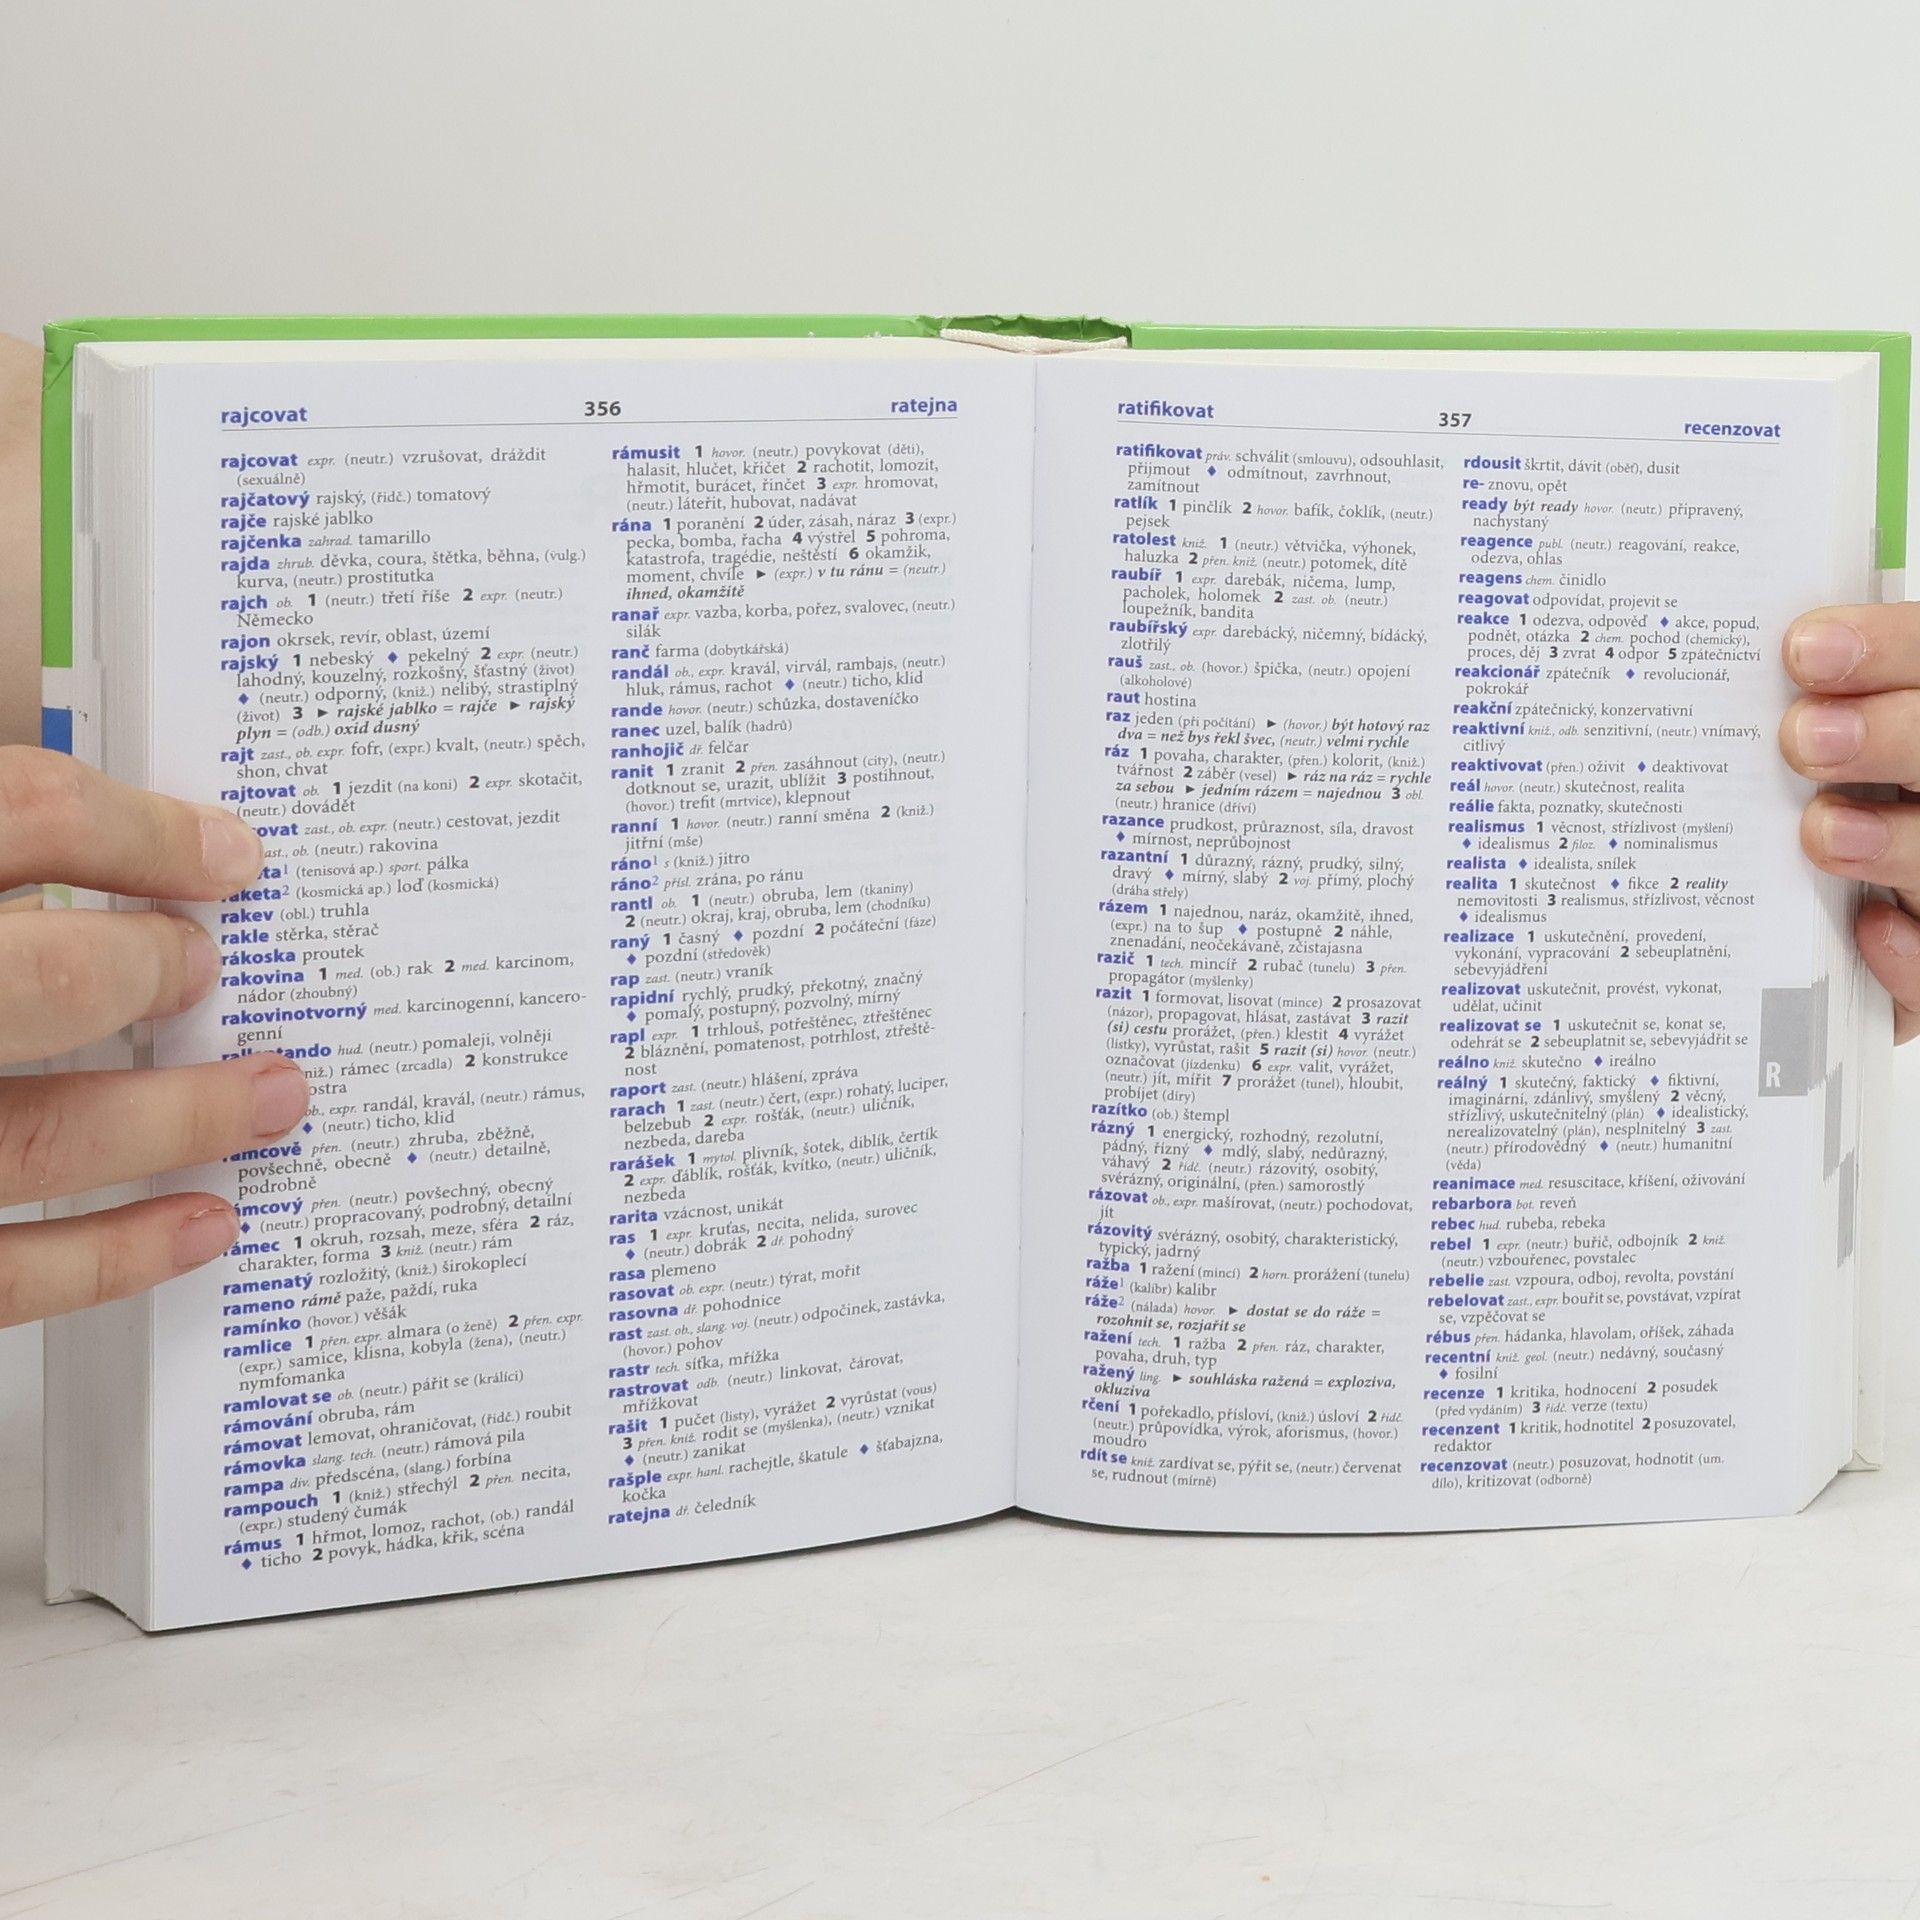 rajcovat 356 ratejna
rajcovat expr. (neutr.) vzrušovat, dráždit
(sexuálně)
rajčatový rajský, (řidč.) tomatový
rajče rajské jablko
rajčenka zahrad. tamarillo
rajda zhrub. děvka, coura, štětka, běhna, (vulg.)
kurva, (neutr.) prostitutka
rajch ob. 1 (neutr.) třetí říše 2 expr. (neutr.)
Německo
rajon okrsek, revír, oblast, území
rajský 1 nebeský ♦ pekelný 2 expr. (neutr.)
lahodný, kouzelný, rozkošný, šťastný (život)
♦ (neutr.) odporný, (kniž.) nelibý, strastiplný
(život) 3 ► rajské jablko = rajče ► rajský
plyn = (odb.) oxid dusný
rajt zast., ob. expr. fofr, (expr.) kvalt, (neutr.) spěch,
shon, chvat
rajtovat ob. 1 jezdit (na koni) 2 expr. skotačit,
(neutr.) dovádět
ovat zast., ob. expr. (neutr.) cestovat, jezdit
ast., ob. (neutr.) rakovina
ta¹ (tenisová ap.) sport. pálka
aketa² (kosmická ap.) loď (kosmická)
rakev (obl.) truhla
rakle stěrka, stěrač
rákoska proutek
rakovina 1 med. (ob.) rak 2 med. karcinom,
nádor (zhoubný)
rakovinotvorný med. karcinogenní, kancero-
genní
hud. (neutr.) pomaleji, volněji
niž.) rámec (zrcadla) 2 konstrukce
ostra
ob., expr. randál, kravál, (neutr.) rámus,
♦ (neutr.) ticho, klid
rámcově přen. (neutr.) zhruba, zběžně,
povšechně, obecně ♦ (neutr.) detailně,
podrobně
ámcový přen. (neutr.) povšechný, obecný
♦ (neutr.) propracovaný, podrobný, detailní
rámec 1 okruh, rozsah, meze, sféra 2 ráz,
charakter, forma 3 kniž. (neutr.) rám
ramenatý rozložitý, (kniž.) širokoplecí
rameno rámě paže, paždí, ruka
ramínko (hovor.) věšák
ramlice 1 přen. expr. almara (o ženě) 2 přen. expr.
(expr.) samice, klisna, kobyla (žena), (neutr.)
nymfomanka
ramlovat se ob. (neutr.) pářit se (králíci)
rámování obruba, rám
rámovat lemovat, ohraničovat, (řidč.) roubit
rámovka slang. tech. (neutr.) rámová pila
rampa div. předscéna, (slang.) forbína
rampouch 1 (kniž.) střechýl 2 přen. necita,
(expr.) studený čumák
rámus 1 hřmot, lomoz, rachot, (ob.) randál
♦ ticho 2 povyk, hádka, křik, scéna
rámusit 1 hovor. (neutr.) povykovat (děti),
halasit, hlučet, křičet 2 rachotit, lomozit,
hřmotit, burácet, řinčet 3 expr. hromovat,
(neutr.) láteřit, hubovat, nadávat
rána 1 poranění 2 úder, zásah, náraz 3 (expr.)
pecka, bomba, řacha 4 výstřel 5 pohroma,
katastrofa, tragédie, neštěstí 6 okamžik,
moment, chvíle ► (expr.) v tu ránu = (neutr.)
ihned, okamžitě
ranař expr. vazba, korba, pořez, svalovec, (neutr.)
silák
ranč farma (dobytkářská)
randál ob., expr. kravál, virvál, rambajs, (neutr.)
hluk, rámus, rachot ♦ (neutr.) ticho, klid
rande hovor. (neutr.) schůzka, dostaveníčko
ranec uzel, balík (hadrů)
ranhojič dř. felčar
ranit 1 zranit 2 přen. zasáhnout (city), (neutr.)
dotknout se, urazit, ublížit 3 postihnout,
(hovor.) trefit (mrtvice), klepnout
ranní 1 hovor. (neutr.) ranní směna 2 (kniž.)
jitřní (mše)
ráno¹ s (kniž.) jitro
ráno² přísl. zrána, po ránu
rantl ob. 1 (neutr.) obruba, lem (tkaniny)
2 (neutr.) okraj, kraj, obruba, lem (chodníku)
raný 1 časný ♦ pozdní 2 počáteční (fáze)
♦ pozdní (středověk)
rap zast. (neutr.) vraník
rapidní rychlý, prudký, překotný, značný
♦ pomalý, postupný, pozvolný, mírný
rapl expr. 1 trhlouš, potřeštěnec, ztřeštěnec
2 bláznění, pomatenost, potrhlost, ztřeště-
nost
raport zast. (neutr.) hlášení, zpráva
rarach 1 zast. (neutr.) čert, (expr.) rohatý, luciper,
belzebub 2 expr. rošťák, (neutr.) uličník,
nezbeda, dareba
rarášek 1 mytol. plivník, šotek, diblík, čertík
2 expr. ďáblík, rošťák, kvítko, (neutr.) uličník,
nezbeda
rarita vzácnost, unikát
ras 1 expr. kruťas, necita, nelida, surovec
♦ (neutr.) dobrák 2 dř. pohodný
rasa plemeno
rasovat ob. expr. (neutr.) týrat, mořit
rasovna dř. pohodnice
rast zast. ob., slang. voj. (neutr.) odpočinek, zastávka,
(hovor.) pohov
rastr tech. síťka, mřížka
rastrovat odb. (neutr.) linkovat, čárovat,
mřížkovat
rašit 1 pučet (listy), vyrážet 2 vyrůstat (vous)
3 přen. kniž. rodit se (myšlenka), (neutr.) vznikat
♦ (neutr.) zanikat
rašple expr. hanl. rachejtle, škatule ♦ šťabajzna,
kočka
ratejna dř. čeledník
ratifikovat 357 recenzovat
ratifikovat práv. schválit (smlouvu), odsouhlasit,
přijmout ♦ odmítnout, zavrhnout,
zamítnout
ratlík 1 pinčlík 2 hovor. bafík, čoklík, (neutr.)
pejsek
ratolest kniž. 1 (neutr.) větvička, výhonek,
haluzka 2 přen. kniž. (neutr.) potomek, dítě
raubíř 1 expr. darebák, ničema, lump,
pacholek, holomek 2 zast. ob. (neutr.)
loupežník, bandita
raubířský expr. darebácký, ničemný, bídácký,
zlotřilý
rauš zast., ob. (hovor.) špička, (neutr.) opojení
(alkoholové)
raut hostina
raz jeden (při počítání) ► (hovor.) být hotový raz
dva = než bys řekl švec, (neutr.) velmi rychle
ráz 1 povaha, charakter, (přen.) kolorit, (kniž.)
tvářnost 2 záběr (vesel) ► ráz na ráz = rychle
za sebou ► jedním rázem = najednou 3 obl.
(neutr.) hranice (dříví)
razance prudkost, průraznost, síla, dravost
♦ mírnost, neprůbojnost
razantní 1 důrazný, rázný, prudký, silný,
dravý ♦ mírný, slabý 2 voj. přímý, plochý
(dráha střely)
rázem 1 najednou, naráz, okamžitě, ihned,
(expr.) na to šup ♦ postupně 2 náhle,
znenadání, neočekávaně, zčistajasna
razič 1 tech. mincíř 2 rubač (tunelu) 3 přen.
propagátor (myšlenky)
razit 1 formovat, lisovat (mince) 2 prosazovat
(názor), propagovat, hlásat, zastávat 3 razit
(si) cestu prorážet, (přen.) klestit 4 vyrážet
(lístky), vyrůstat, rašit 5 razit (si) hovor. (neutr.)
označovat (jízdenku) 6 expr. valit, vyrážet,
(neutr.) jít, mířit 7 prorážet (tunel), hloubit,
probíjet (díry)
razítko (ob.) štempl
rázný 1 energický, rozhodný, rezolutní,
pádný, řízný ♦ mdlý, slabý, nedůrazný,
váhavý 2 řidč. (neutr.) rázovitý, osobitý,
svérázný, originální, (přen.) samorostlý
rázovat ob., expr. mašírovat, (neutr.) pochodovat,
jít
rázovitý svérázný, osobitý, charakteristický,
typický, jadrný
ražba 1 ražení (mincí) 2 horn. prorážení (tunelu)
ráže¹ (kalibr) kalibr
ráže² (nálada) hovor. ► dostat se do ráže =
rozohnit se, rozjařit se
ražení tech. 1 ražba 2 přen. ráz, charakter,
povaha, druh, typ
ražený ling. ► souhláska ražená = exploziva,
okluziva
rčení 1 pořekadlo, přísloví, (kniž.) úsloví 2 řidč.
(neutr.) průpovídka, výrok, aforismus, (hovor.)
moudro
rdít se kniž. zardívat se, pýřit se, (neutr.) červenat
se, rudnout (mírně)
rdousit škrtit, dávit (oběť), dusit
re- znovu, opět
ready být ready hovor. (neutr.) připravený,
nachystaný
reagence publ. (neutr.) reagování, reakce,
odezva, ohlas
reagens chem. činidlo
reagovat odpovídat, projevit se
reakce 1 odezva, odpověď ♦ akce, popud,
podnět, otázka 2 chem. pochod (chemický),
proces, děj 3 zvrat 4 odpor 5 zpátečnictví
reakcionář zpátečník ♦ revolucionář,
pokrokář
reakční zpátečnický, konzervativní
reaktivní kniž., odb. senzitivní, (neutr.) vnímavý,
citlivý
reaktivovat (přen.) oživit ♦ deaktivovat
reál hovor. (neutr.) skutečnost, realita
reálie fakta, poznatky, skutečnosti
realismus 1 věcnost, střízlivost (myšlení)
♦ idealismus 2 filoz. ♦ nominalismus
realista ♦ idealista, snílek
realita 1 skutečnost ♦ fikce 2 reality
nemovitosti 3 realismus, střízlivost, věcnost
♦ idealismus
realizace 1 uskutečnění, provedení,
vykonání, vypracování 2 sebeuplatnění,
sebevyjádření
realizovat uskutečnit, provést, vykonat,
udělat, učinit
realizovat se 1 uskutečnit se, konat se,
odehrát se 2 sebeuplatnit se, sebevyjádřit se
reálno kniž. skutečno ♦ ireálno
reálný 1 skutečný, faktický ♦ fiktivní,
imaginární, zdánlivý, smyšlený 2 věcný,
střízlivý, uskutečnitelný (plán) ♦ idealistický,
nerealizovatelný (plán), nesplnitelný 3 zast.
(neutr.) přírodovědný ♦ (neutr.) humanitní
(věda)
reanimace med. resuscitace, kříšení, oživování
rebarbora bot. reveň
rebec hud. rubeba, rebeka
rebel 1 expr. (neutr.) buřič, odbojník 2 kniž.
(neutr.) vzbouřenec, povstalec
rebelie zast. vzpoura, odboj, revolta, povstání
rebelovat zast., expr. bouřit se, povstávat, vzpírat
se, vzpěčovat se
rébus přen. hádanka, hlavolam, oříšek, záhada
recentní kniž. geol. (neutr.) nedávný, současný
♦ fosilní
recenze 1 kritika, hodnocení 2 posudek
(před vydáním) 3 řidč. verze (textu)
recenzent 1 kritik, hodnotitel 2 posuzovatel,
redaktor
recenzovat (neutr.) posuzovat, hodnotit (um.
dílo), kritizovat (odborně)
R